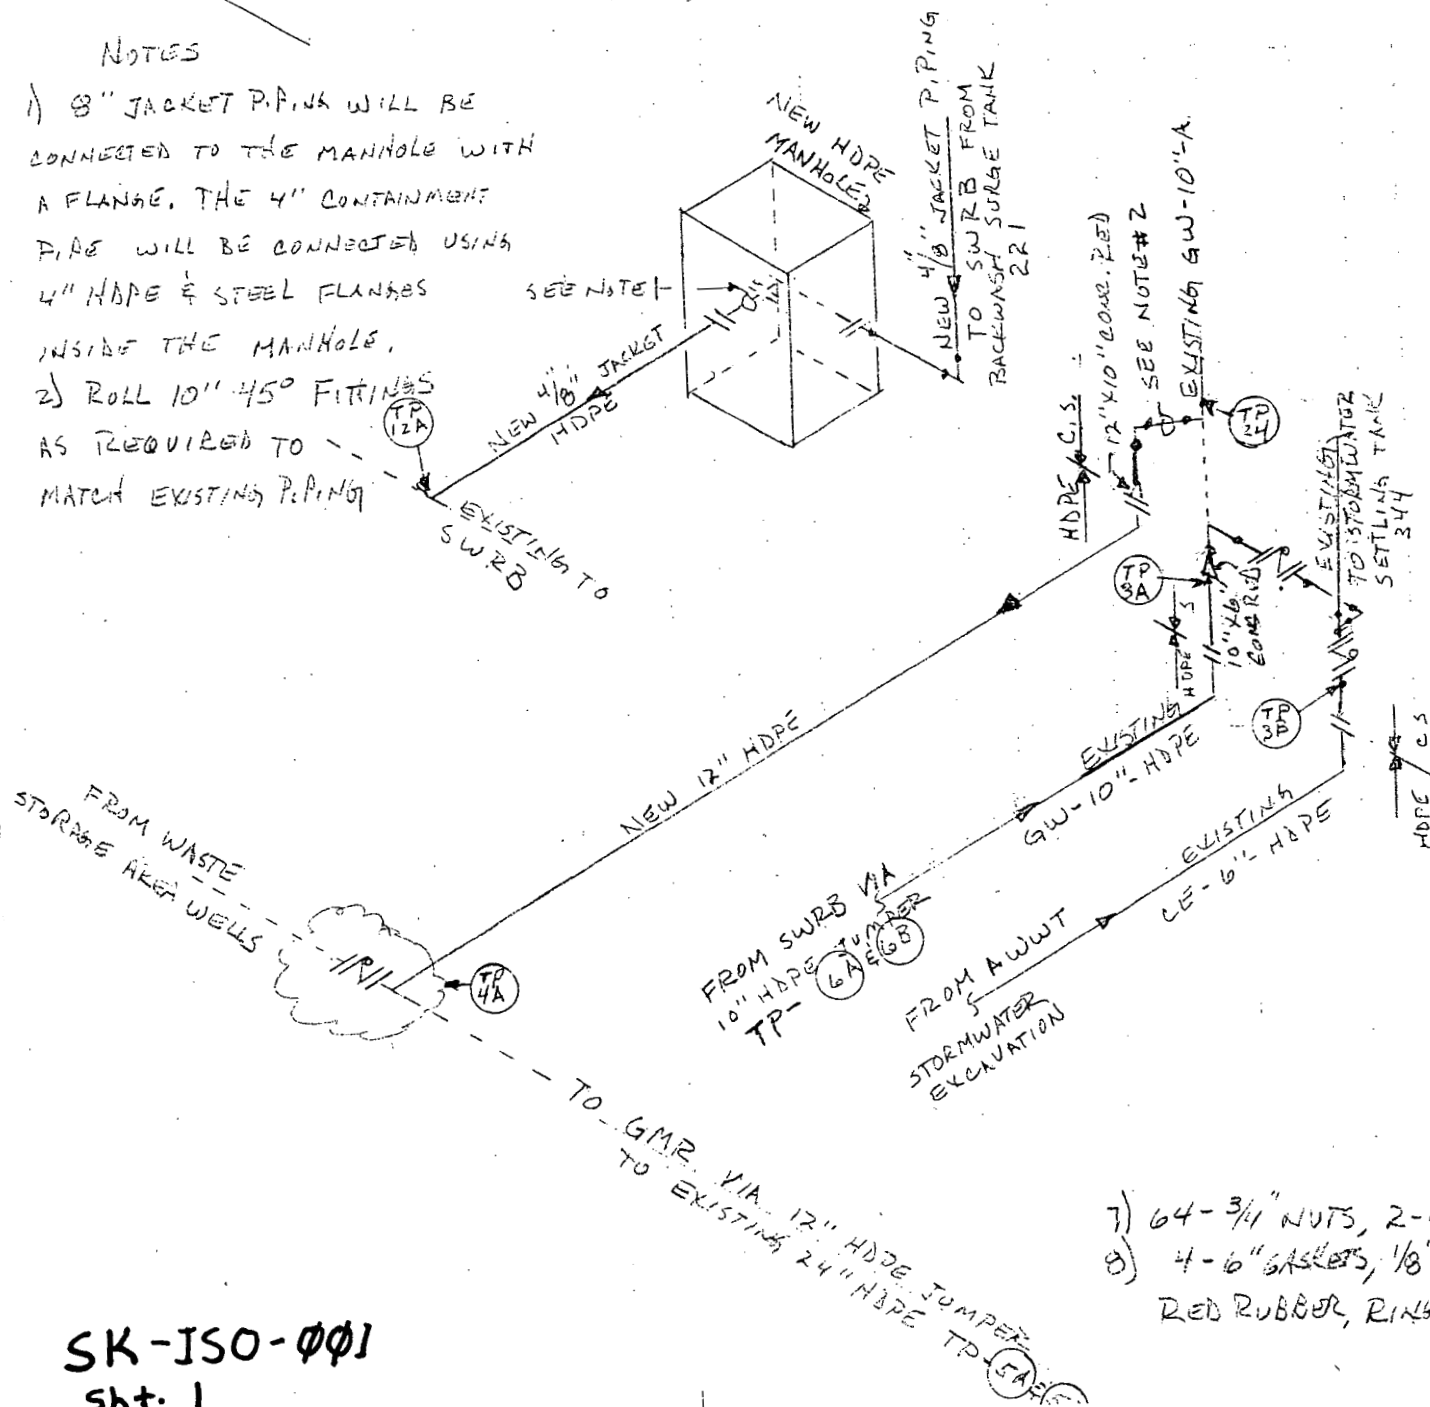 NOTES
1) 8" JACKET PIPING WILL BE
CONNECTED TO THE MANHOLE WITH
A FLANGE. THE 4" CONTAINMENT
PIPE WILL BE CONNECTED USING
4" HDPE & STEEL FLANGES
INSIDE THE MANHOLE.
2) ROLL 10" 45° FITTINGS
AS REQUIRED TO
MATCH EXISTING PIPING
NEW HDPE
MANHOLE
SEE NOTE 1
NEW 4"/8" JACKET
HDPE
TP
12A
EXISTING TO
SWRB
NEW 4"/8" JACKET PIPING
TO SWRB FROM
BACKWASH SURGE TANK
221
HDPE / C.S.
12"X10" CONC. RED
SEE NOTE #2
EXISTING GW-10"-A
TP
24
EXISTING
TO STORMWATER
SETTLING TANK
344
TP
3A
HDPE / S
10"X6"
CONC RED
TP
3B
HDPE / CS
NEW 12" HDPE
EXISTING
GW-10"-HDPE
EXISTING
CE-6"-HDPE
FROM WASTE
STORAGE AREA WELLS
TP
4A
FROM SWRB VIA
10" HDPE JUMPER
TP- 6A & 6B
FROM AWWT
STORMWATER
EXCAVATION
TO GMR VIA 12" HDPE JUMPER
TO EXISTING 24" HDPE TP-5A &
7) 64-3/4" NUTS, 2-
8) 4-6" GASKETS, 1/8"
RED RUBBER, RING
SK-ISO-001
Sht. 1